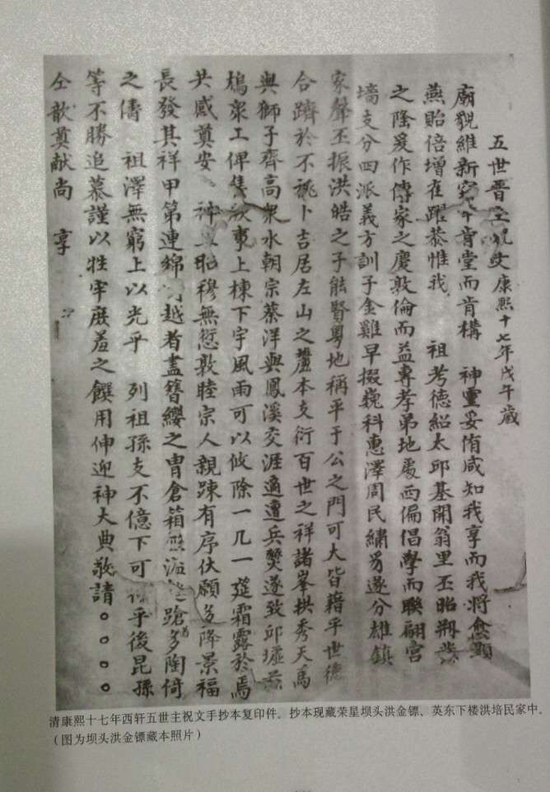 五世晋主祝文康熙十七年戊午歲
廟貌維新肯堂而肯構 神靈妥侑咸知我享而我將愈顯
燕貽倍增雀躍恭惟我 祖考德紹太邱基開翁里丕昭荆棠
之陰爰作傳家之慶敦倫而益專孝弟地處西偏倡學而聯翩宫
墻支分四派義方訓子金雞早掇巍科惠澤周民繡旁遂分雄鎮
家聲丕振洪皓之子能賢粤地稱平于公之門可大皆藉乎世德
合躋於不祧卜吉居左山之麓本支衍百世之祥諸峯拱秀天馬
與獅子齊高衆水朝宗蔡洋與鳳溪交涯適遭兵燹遂致邱墟茲
鳩衆工俾隻上棟下宇風雨可以攸除一几一筵霜露於焉
共感奠安神昭穆無愆敦睦宗人親踈有序伏願多降景福
長發其祥甲第連綿越者盡簪纓之冑倉箱蹌多陶倚
之儔 祖澤無窮上以光乎 列祖孫支不億下可乎後昆孫
等不勝追慕謹以牲牢庶羞之饌用伸迎神大典敬請。。。。
仝歆奠献尚 享
清康熙十七年西轩五世主祝文手抄本复印件。抄本现藏荣星坝头洪金镖、英东下楼洪培民家中。
（图为坝头洪金镖藏本照片）